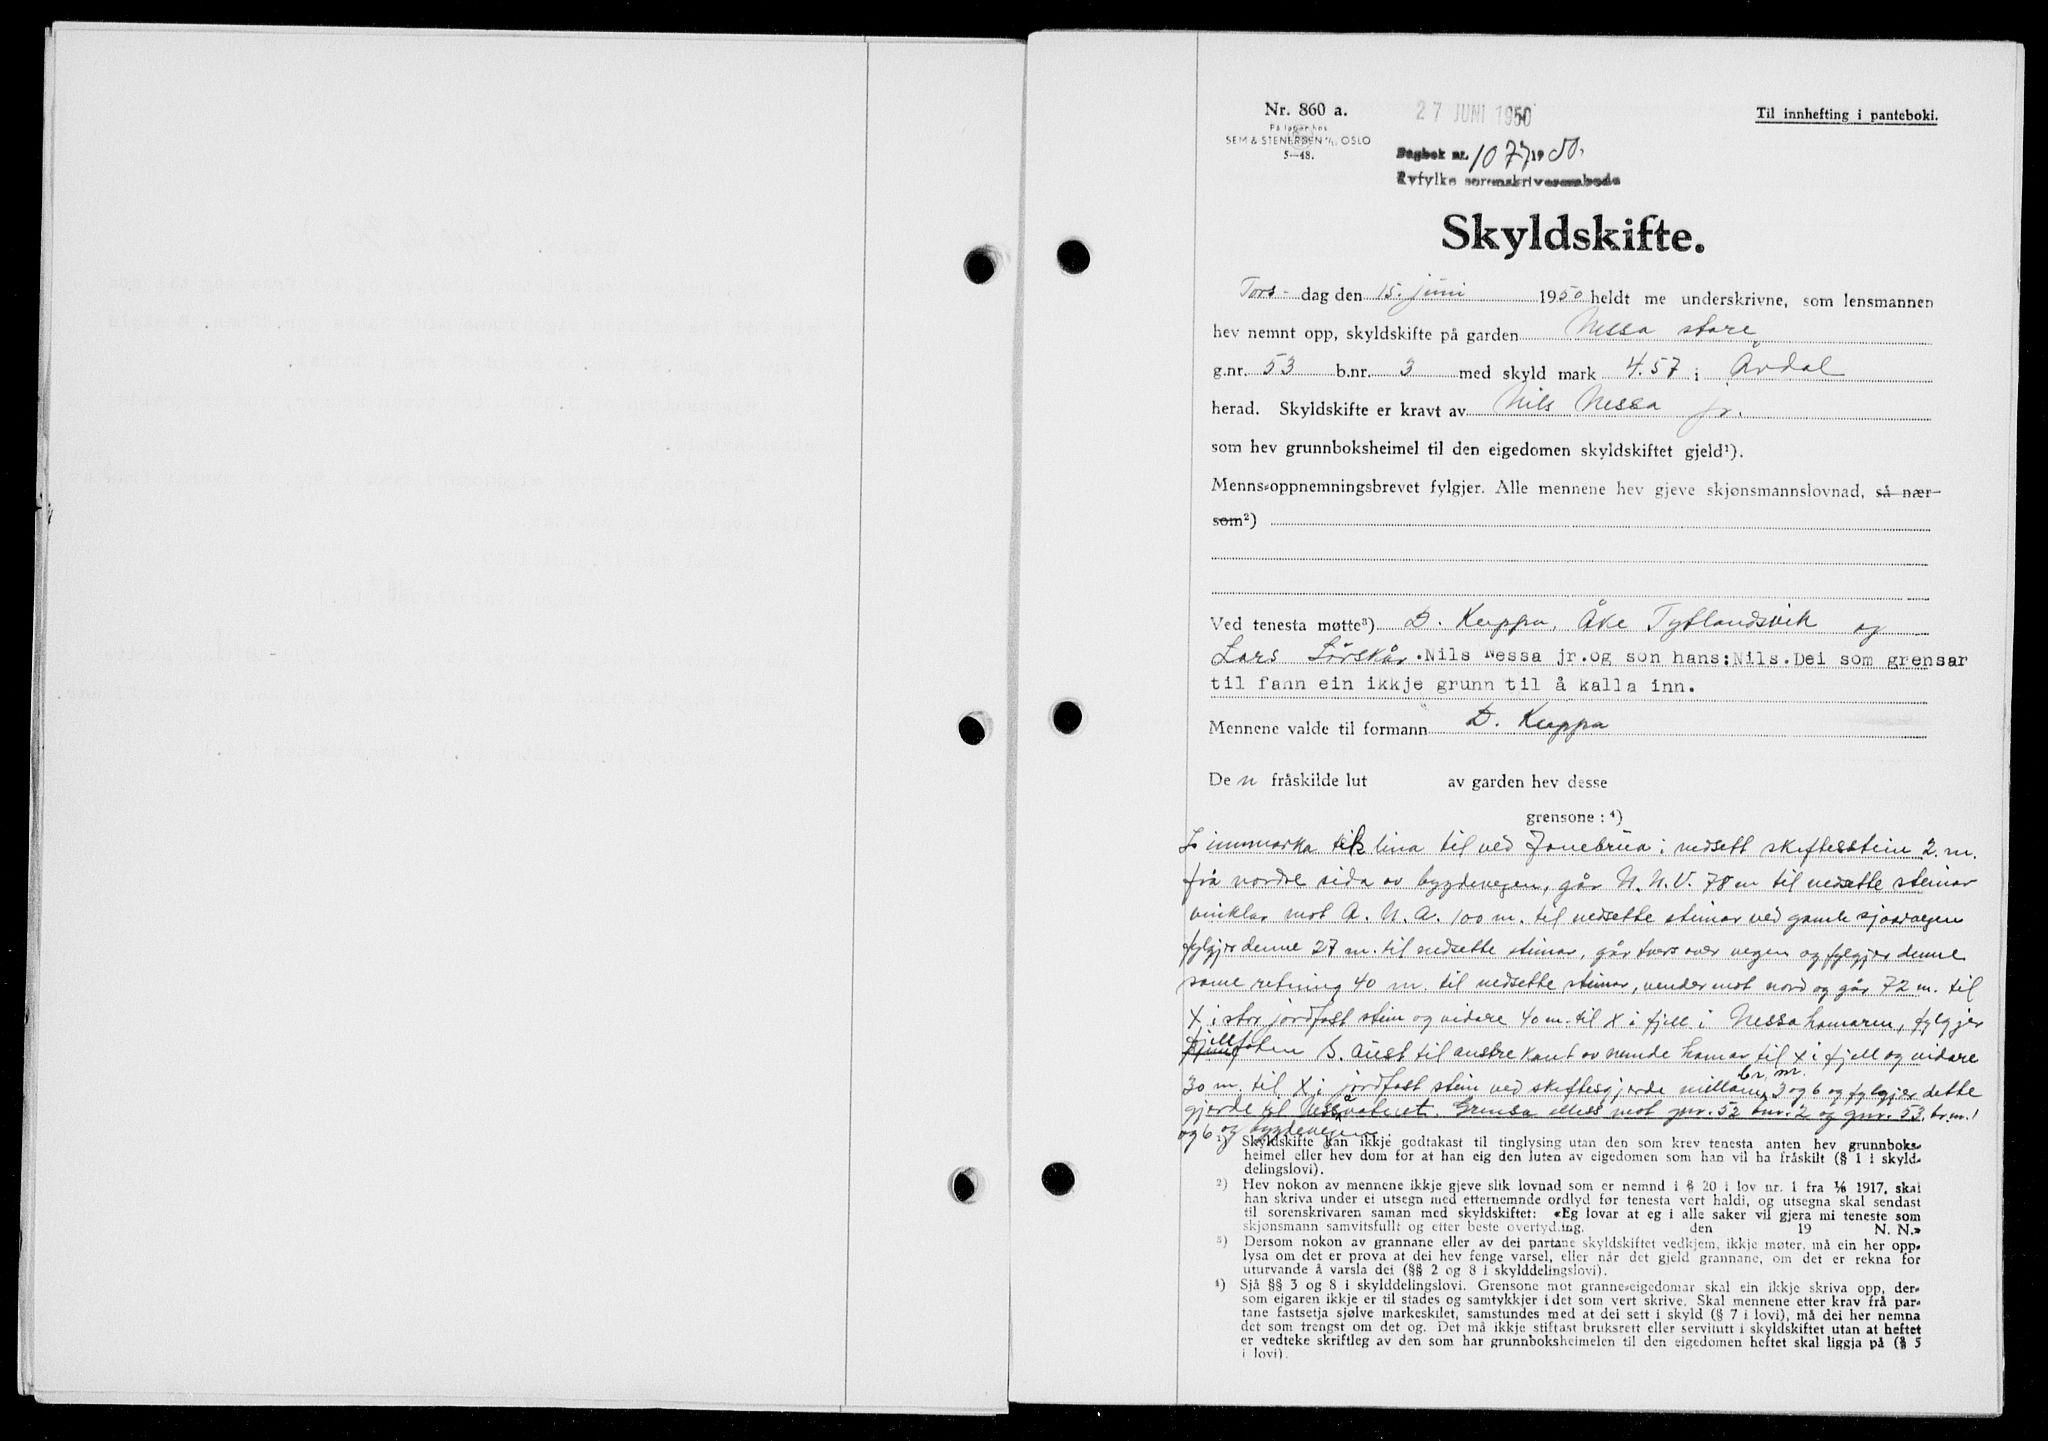 Nr. 860 a.
På lager hos
SEM & STENERSEN A/S OSLO
5—48.
27 JUNI 1950
Dagbok nr. 1077 1950.
Ryfylke sorenskriverembede
Til innhefting i panteboki.
Skyldskifte.
Tors- dag den 15. juni 1950 heldt me underskrivne, som lensmannen
hev nemnt opp, skyldskifte på garden Nessa store
g.nr. 53 b.nr. 3 med skyld mark 4.57 i Årdal
herad. Skyldskifte er kravt av Nils Nessa jr.
som hev grunnboksheimel til den eigedomen skyldskiftet gjeld¹).
Menns-oppnemningsbrevet fylgjer. Alle mennene hev gjeve skjønsmannslovnad, så nær-
som²)
Ved tenesta møtte³) D. Kuppa, Åke Tytlandsvik og
Lars Sørskår. Nils Nessa jr. og son hans: Nils. Dei som grensar
til fann ein ikkje grunn til å kalla inn.
Mennene valde til formann D. Kuppa
Den fråskilde lut av garden hev desse
grensone: ⁴)
I innmarka lina til ved Jonebrua i nedsett skiftesstein 2. m.
frå nordre sida av bygdevegen, går N. N. V. 78 m til nedsette steinar
vinklar mot A. N. A. 100 m. til nedsette steinar ved gamle sjoarvegen
fylgjer denne 27 m. til nedsette steinar, går tvers over vegen og fylgjer denne
same retning 40 m. til nedsette steinar, vender mot nord og går 72 m. til
X i stor jordfast stein og vidare 40 m. til X i fjell i Nessahamaren, fylgjer
fjellfoten S. Aust til austre kant av nemnde hamar til X i fjell og vidare
30 m. til X i jordfast stein ved skiftesgjerde millom br. nr. 3 og 6 og fylgjer dette
gjerde til Nessavatnet. Grensa elles mot gnr. 52 bnr. 2 og gnr. 53. br.nr. 1
og 6 og bygdevegen.
¹) Skyldskifte kan ikkje godtakast til tinglysing utan den som krev tenesta anten hev grunnboks-
heimel eller hev dom for at han eig den luten av eigedomen som han vil ha fråskilt (§ 1 i skyld-
delingslovi).
²) Hev nokon av mennene ikkje gjeve slik lovnad som er nemnd i § 20 i lov nr. 1 fra 1/6 1917, skal
han skriva under ei utsegn med etternemnde ordlyd før tenesta vert haldi, og utsegna skal sendast
til sorenskrivaren saman med skyldskiftet: «Eg lovar at eg i alle saker vil gjera mi teneste som
skjønsmann samvitsfullt og etter beste overtyding. den 19 N. N.»
³) Dersom nokon av grannane eller av dei partane skyldskiftet vedkjem, ikkje møter, må ein her opp-
lysa om det er prova at dei hev fenge varsel, eller når det gjeld grannane, om det er rekna for
uturvande å varsla dei (§§ 2 og 8 i skylddelingslovi).
⁴) Sjå §§ 3 og 8 i skylddelingslovi. Grensone mot granne-eigedomar skal ein ikkje skriva opp, der-
som eigaren ikkje er til stades og samtykkjer i det som vert skrive. Skal mennene etter krav frå par-
tane fastsetja sjølve markeskilet, samstundes med at dei sett i skyld (§ 7 i lovi), må dei her nemna
det som trengst om det og. Det må ikkje stiftast bruksrett eller servitutt i skyldskiftet utan at heftet
er vedteke skriftleg av den som har grunnboksheimelen til den eigedomen heftet skal liggja på (§ 5
i lovi).